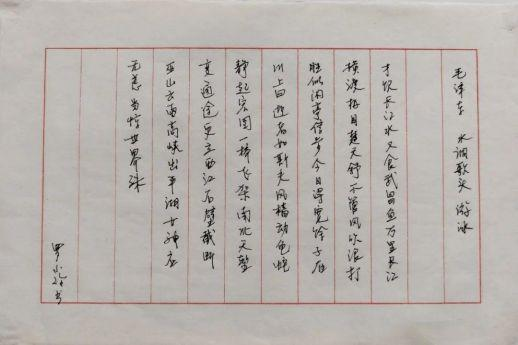 毛泽东 水调歌头 游泳
才饮长江水又食武昌鱼万里长江
横渡极目楚天舒不管风吹浪打
胜似闲亭信步今日得宽馀子在
川上曰逝者如斯夫风樯动龟蛇
静起宏图一桥飞架南北天堑
变通途更立西江石壁截断
巫山云雨高峡出平湖女神应
无恙当惊世界殊